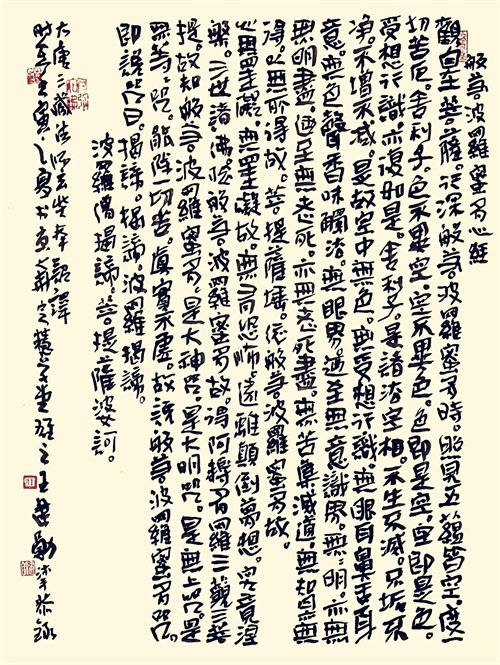 般若波羅蜜多心經
觀自在菩薩。行深般若波羅蜜多時。照見五蘊皆空。度一
切苦厄。舍利子。色不異空。空不異色。色即是空。空即是色。
受想行識亦復如是。舍利子。是諸法空相。不生不滅。不垢不
淨。不增不減。是故空中無色。無受想行識。無眼耳鼻舌身
意。無色聲香味觸法。無眼界。乃至無意識界。無無明。亦無
無明盡。乃至無老死。亦無老死盡。無苦集滅道。無智亦無
得。以無所得故。菩提薩埵。依般若波羅蜜多故。
心無罣礙。無罣礙故。無有恐怖。遠離顛倒夢想。究竟涅
槃。三世諸佛。依般若波羅蜜多故。得阿耨多羅三藐三菩
提。故知般若波羅蜜多。是大神咒。是大明咒。是無上咒。是
無等等咒。能除一切苦。真實不虛。故說般若波羅蜜多咒。
即說咒曰。揭諦。揭諦。波羅揭諦。
波羅僧揭諦。菩提薩婆訶。
大唐三藏法師玄奘奉詔譯
时在壬寅之夏 恭錄